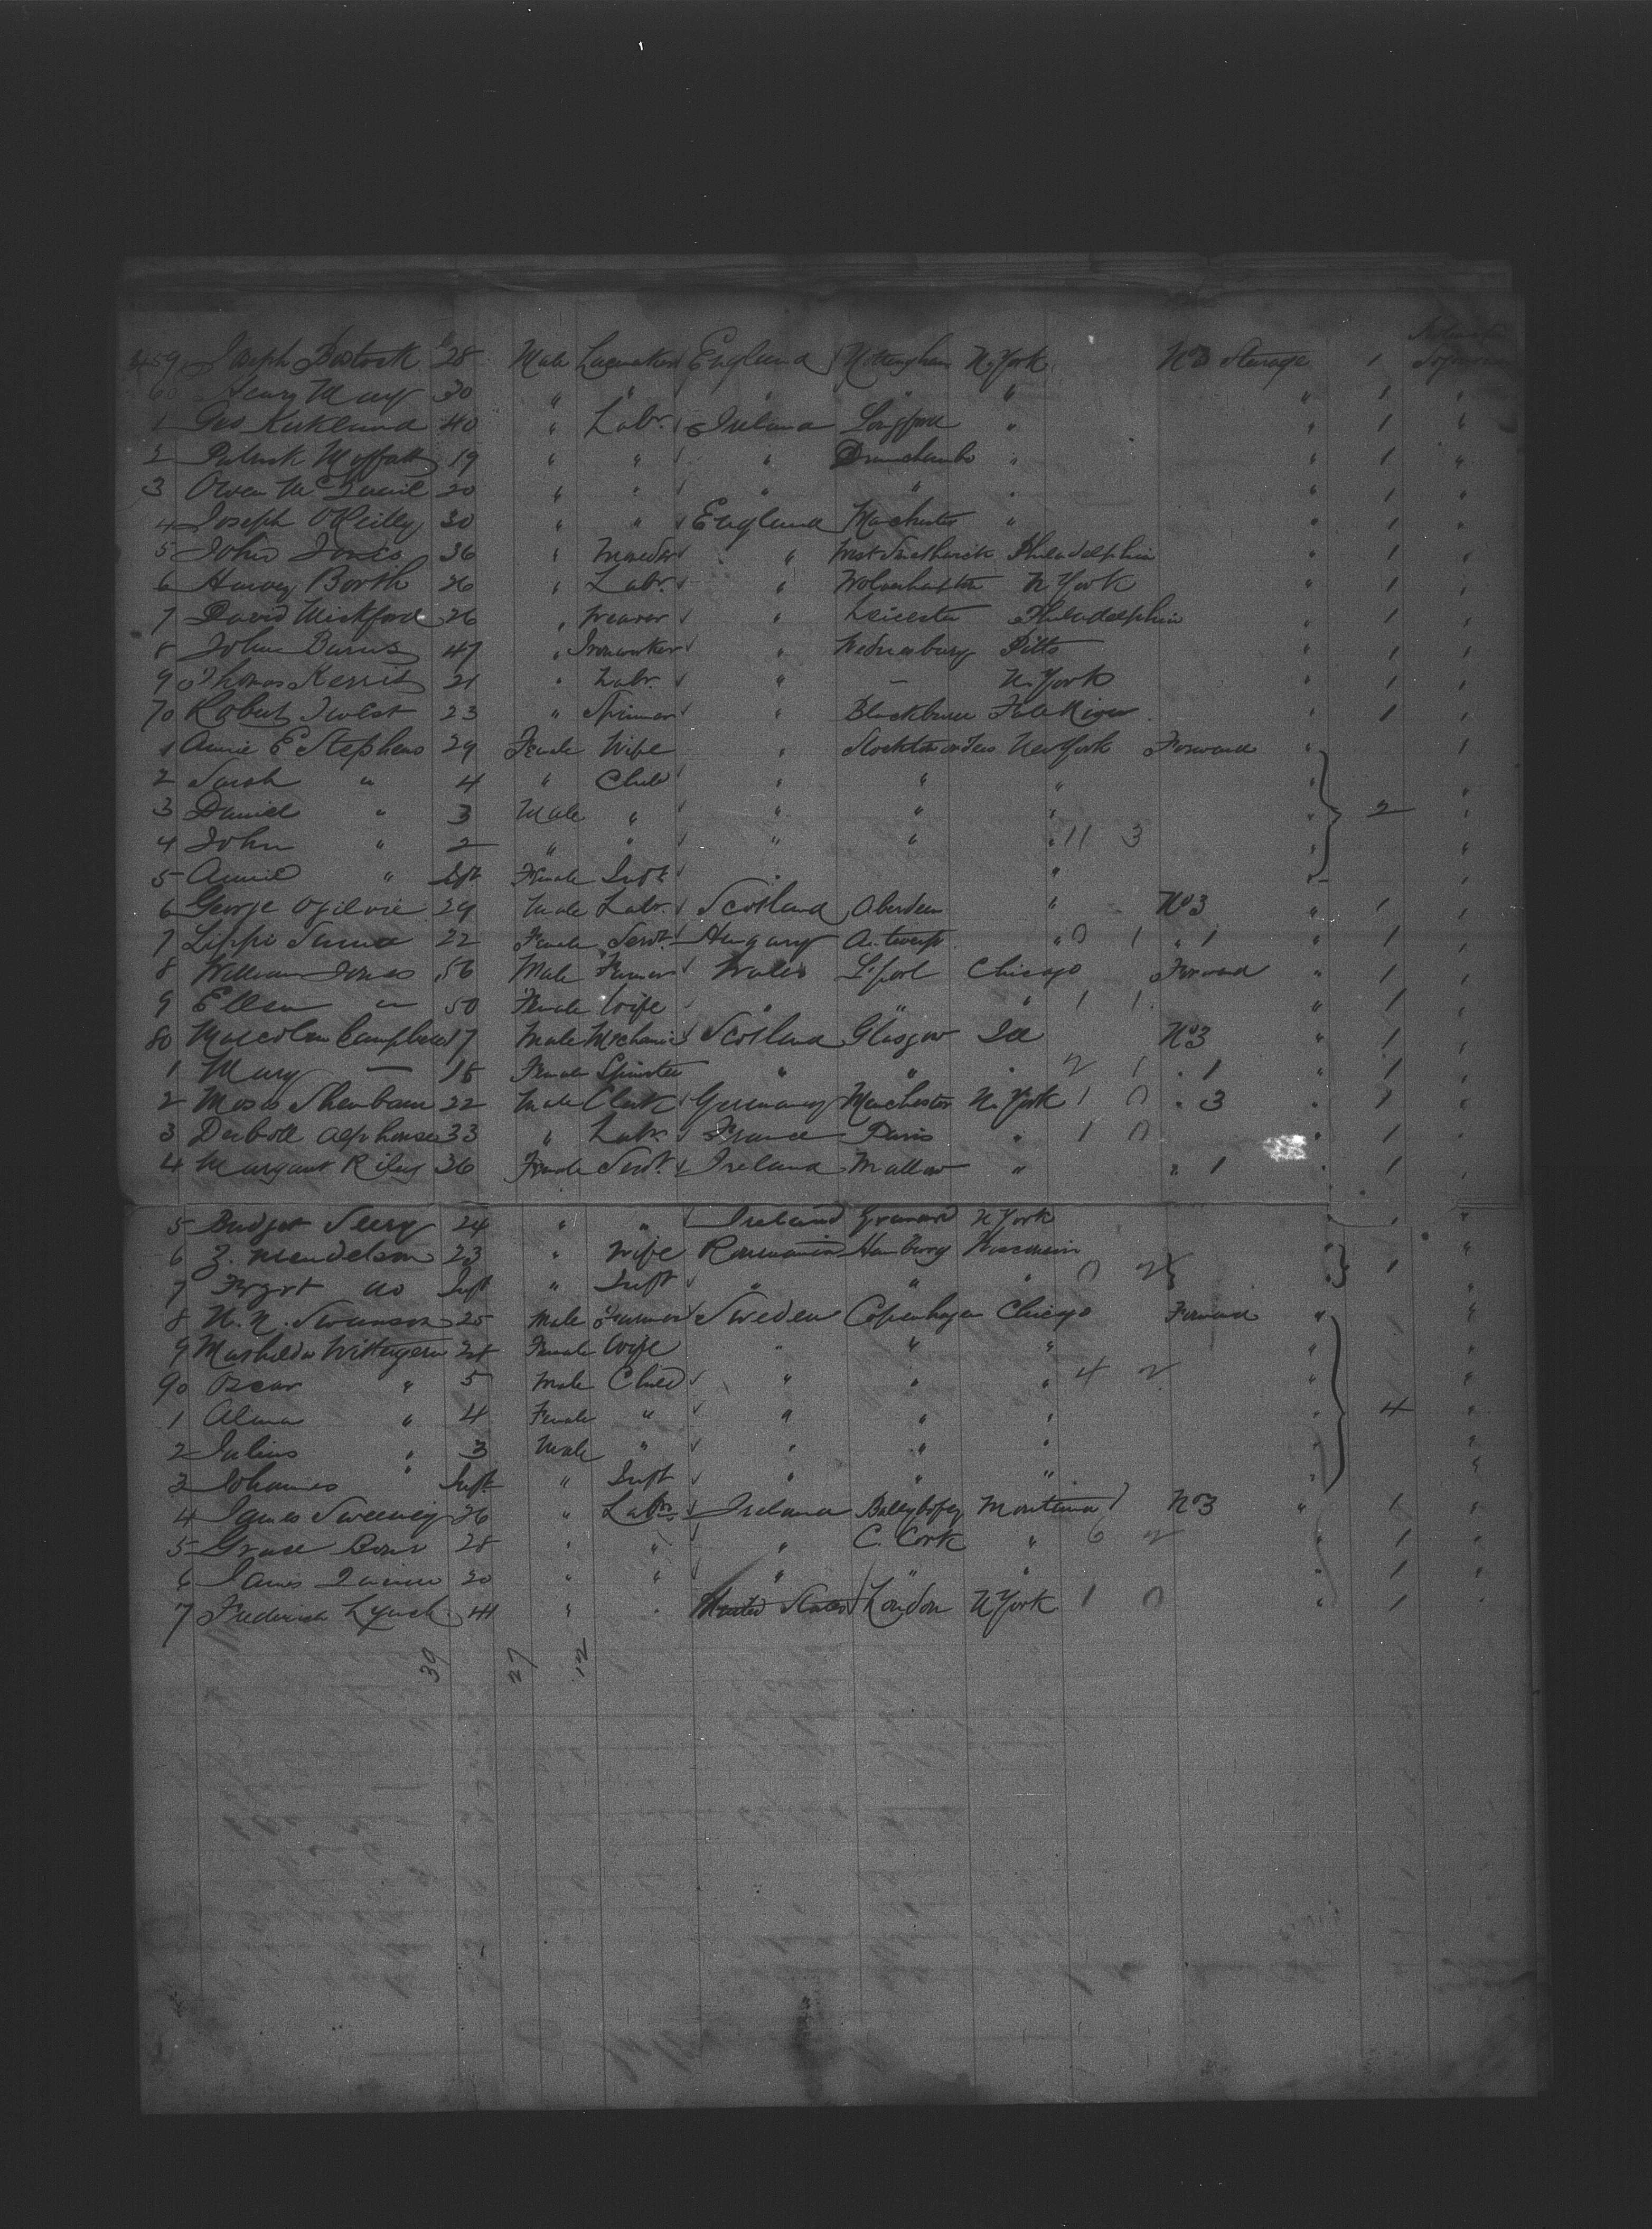 459 Joseph Bostock 28 Male Lacemaker England Nottingham N. York No 3 Steerage 1
60 Henry May 30 " " " " " " 1 "
1 Geo Kirkland 40 " Labr. Ireland Longford " " 1 "
2 Patrick Moffatt 19 " " " " " 1 "
3 Owen 20 " " " " " " 1 "
4 Joseph O'Reilly 30 " " England Manchester " " 1 "
5 John Jones 36 " " Philadelphia " 1 "
6 Harvey Booth 26 " Labr. " Wolverhampton N. York " 1 "
7 David 26 " Weaver " Leicester Philadelphia " 1 "
8 John Burns 47 " Ironworker " Wednesbury Pitts " 1 "
9 Thomas 21 " Labr. " — N. York " 1 "
70 Robert 23 " Spinner " Blackburn Fall River " 1 "
1 Annie E Stephens 29 Female Wife " Stockton on Tees New York Forward " "
2 Sarah " 4 " Child " " " " "
3 Daniel " 3 Male " " " " " 2 "
4 John " 2 " " " " " 11 3 " "
5 Annie " Inft Female Inft " " " "
6 George Ogilvie 29 Male Labr. Scotland Aberdeen " No 3 " 1 "
7 Lippi 22 Female Servt. Hungary Antwerp " 0 1 " 1 " 1 "
8 William Jones 56 Male Farmer Wales L'pool Chicago Forward " 1 "
9 Ellen " 50 Female Wife " " " 1 1 " 1 "
80 Malcolm Campbell 17 Male Mechanic Scotland Glasgow Ill No 3 " 1 "
1 Mary — 18 Female Spinster " " " 2 1 " 1 " 1 "
2 Moses 22 Male Clerk Germany Manchester N. York 1 0 " 3 " 1 "
3 Alphonse 33 " Labr. France Paris " 1 0 " 1 "
4 Margaret Riley 36 Female Servt. Ireland Mallow " " 1 " 1 "
5 Bridget Seery 24 " " Ireland Granard N York " 1 "
6 Z. Mendelson 23 " Wife Roumania Hamburg Wisconsin " 1 "
7 do Inft " Inft " " " 0 2 " "
8 N. N. Swanson 25 Male Farmer Sweden Copenhagen Chicago Forward " "
9 Mathilda 28 Female Wife " " " " "
90 Oscar " 5 Male Child " " " 4 2 " "
1 Alma " 4 Female " " " " " 4 "
2 Julius " 3 Male " " " " "
3 Johannes " Inft " Inft " " " " "
4 James Sweeney 26 " Labr. Ireland Ballybofey Montana No 3 " 1 "
5 28 " " " C. Cork " 6 2 " 1 "
6 James 20 " " " " " " 1 "
7 Frederick Lynch 44 " " United States London N York 1 0 " 1 "
39 27 12